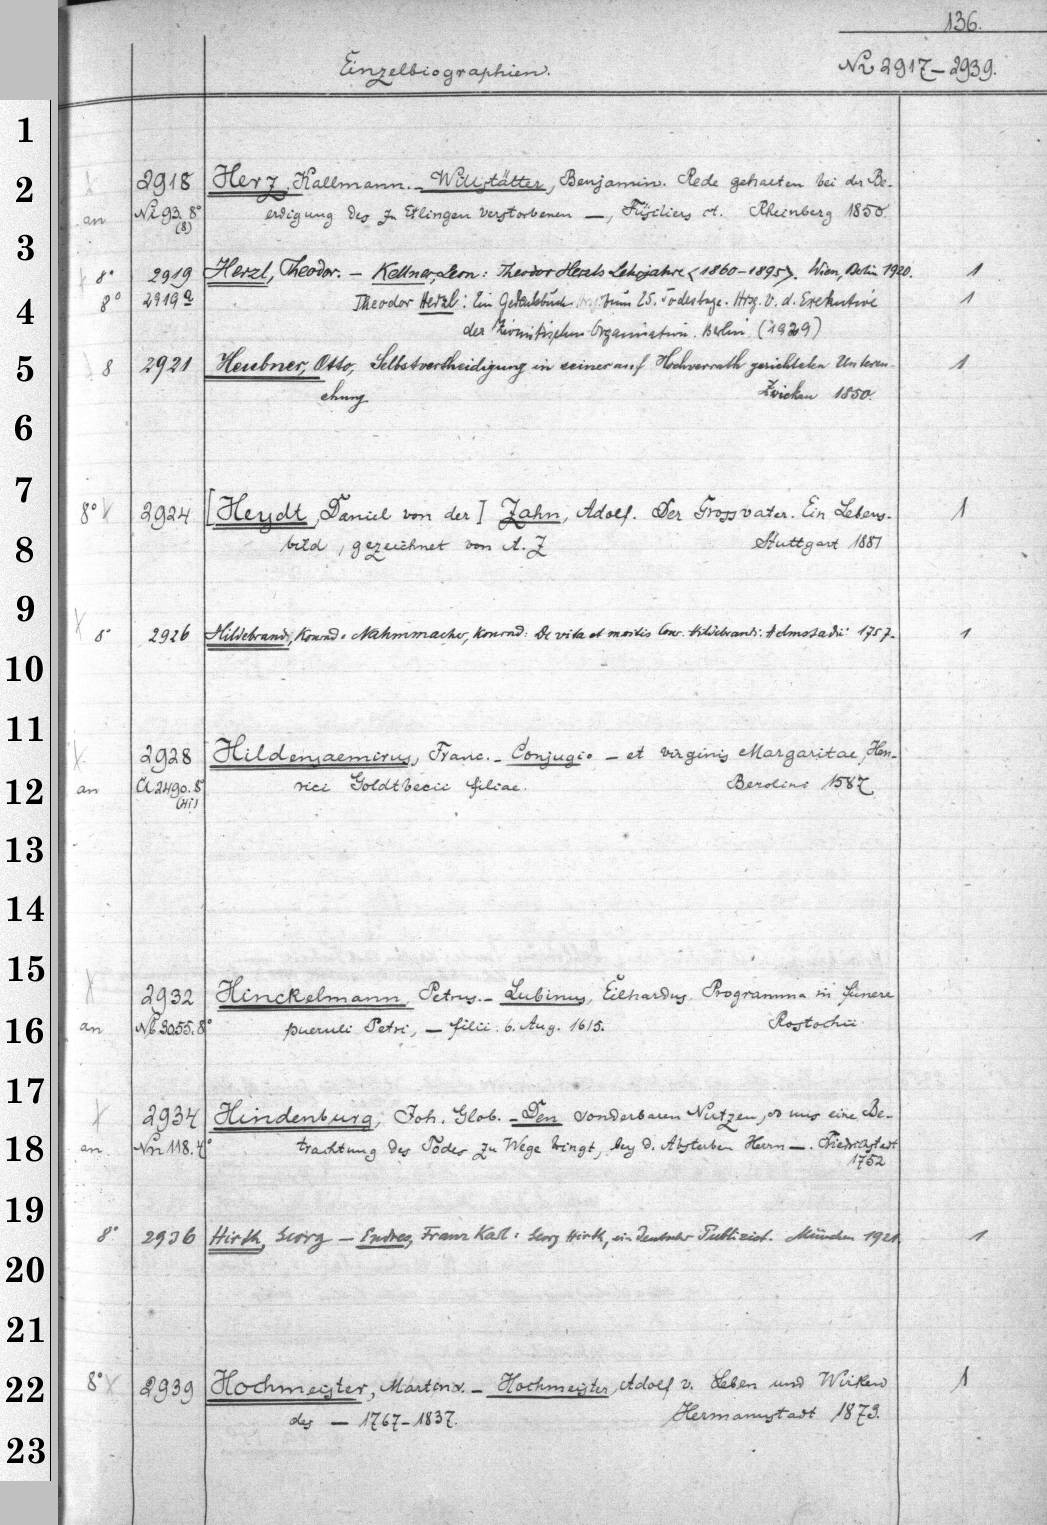 136.
Einzelbiographien. Ni 2917–2939.
1
2 2918 Herz, Kallmann. – Willstätter, Benjamin. Rede gehalten bei der Be-
an Ni 93. 8° (8) erdigung des zu Etlingen verstorbenen —, Füsiliers ct. Rheinberg 1850.
3
8° 2919 Herzl, Theodor. – Kellner, Leon: Theodor Herzls Lehrjahre <1860–1895>. Wien, Berlin 1920. 1
4 8° 2919a Theodor Herzl: Ein Gedenkbuch zum 25. Todestage. Hrsg. v. d. Exekutive 1
der Zionistischen Organisation. Berlin (1929)
5 8 2921 Heubner, Otto, Selbstvertheidigung in seiner auf Hochverrath gerichteten Untersu- 1
chung Zwickau 1850.
6
7
8° 2924 [Heydt, Daniel von der] Zahn, Adolf. Der Grossvater. Ein Lebens- 1
8 bild, gezeichnet von A. Z Stuttgart 1881
9
8° 2926 Hildebrand, Konrad. Nahmmacher, Konrad: De vita et mortis Conr. Hildebrandi. Helmstadii 1757. 1
10
11
2928 Hildensaemirus, Franc. – Conjugio – et virginis Margaritae, Hen-
12 an Cl 2490. 8° (Hi) rici Goldtbecii filiae. Berolini 1587
13
14
15
2932 Hinckelmann, Petrus. – Lubinus, Eilhardus. Programma in funere
16 an Nb 3055. 8° pueruli Petri, — filii. 6. Aug. 1615. Rostochii
17
2934 Hindenburg, Joh. Glob. – Den sonderbaren Nutzen, so uns eine Be-
18 an Nn 118. 4° trachtung des Todes zu Wege bringt, bey d. Absterben Herrn —. Friedrichstadt
1752
19
8° 2936 Hirth, Georg – Endres, Franz Karl: Georg Hirth, ein deutscher Publizist. München 1921. 1
20
21
22 8° 2939 Hochmeister, Martin v. – Hochmeister, Adolf v. Leben und Wirken 1
des — 1767–1837. Hermannstadt 1873.
23